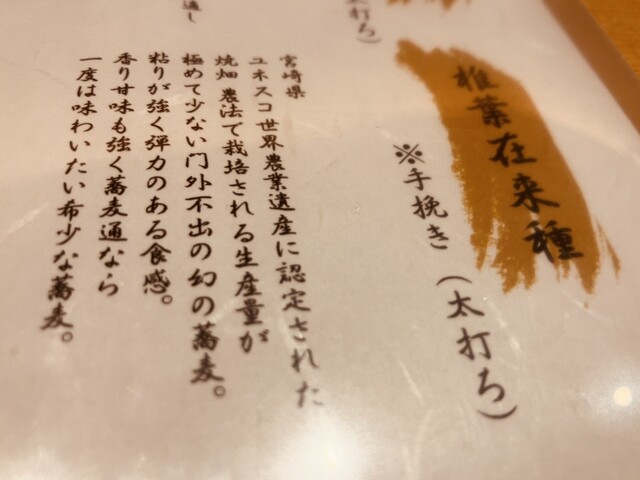 椎葉在来種
※手挽き(太打ち)
宮崎県
ユネスコ世界農業遺産に認定された
焼畑農法で栽培される生産量が
極めて少ない門外不出の幻の蕎麦。
粘りが強く弾力のある食感。
香り甘味も強く蕎麦通なら
一度は味わいたい希少な蕎麦。
太打ち)
通し